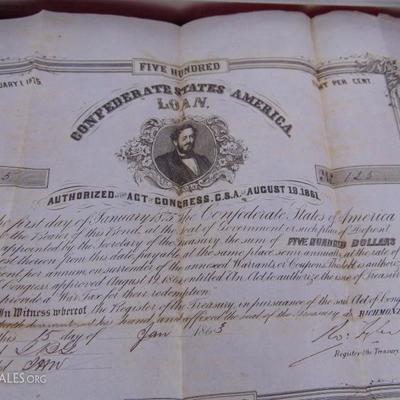 FIVE HUNDRED
PER CENT.
CONFEDERATE STATES AMERICA
LOAN.
125
AUTHORIZED ACT OF CONGRESS, C.S.A. AUGUST 19. 1861.
first day of January the Confederate States of America
the Bearer of this Bond, at the seat of Government or such place of Deposit
appointed by the Secretary of the Treasury, the sum of FIVE HUNDRED DOLLARS
from this date, payable at the same place semi annually, at the rate of
per annum, on surrender of the annexed Warrants, or Coupons. is authorized
Congress approved August 19. 1861 entitled An Act to authorize the issue of Treasury
provide a War Tax for their redemption.
In Witness whereof the Register of the Treasury, in pursuance of the said Act of Congress
hereunto set his hand, and affixed the seal of the Treasury at RICHMOND
this 15 day of Jan 1863
Register of the Treasury
SALES.ORG